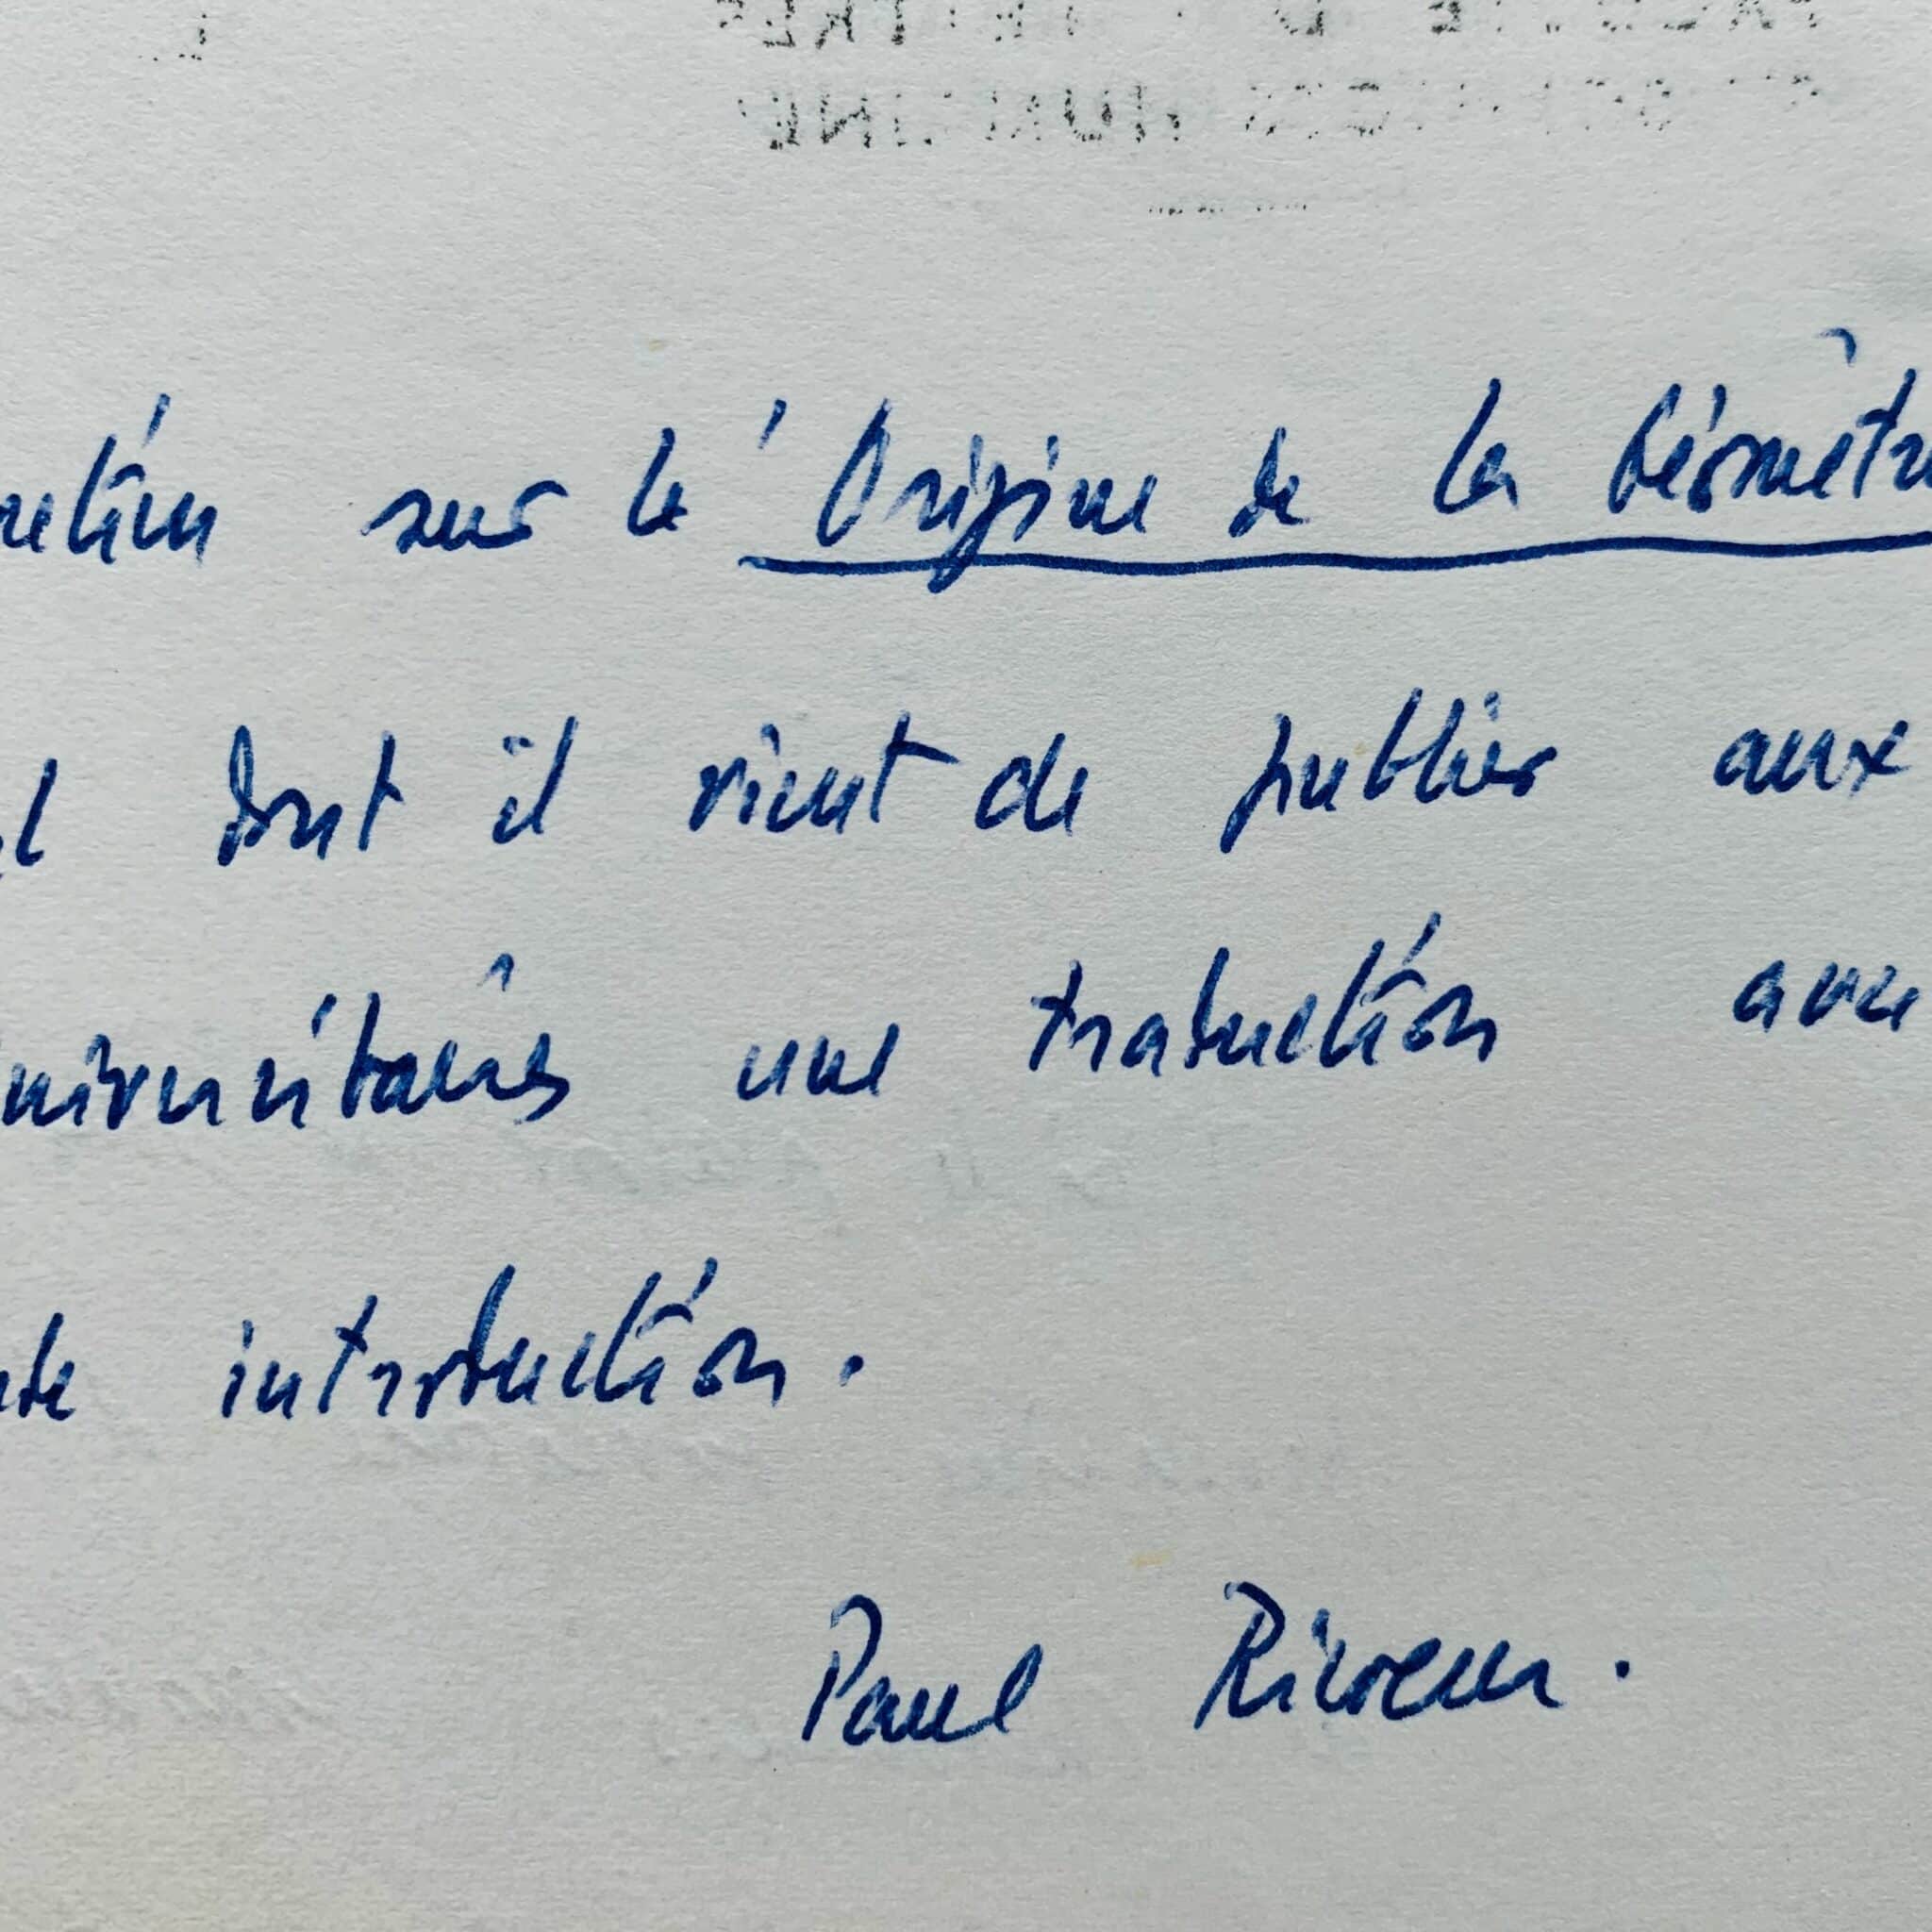 sur le 'Origine de la Géométr
dont il vient de publier aux
niversitaires une traduction avec
introduction.
Paul Ricoeur.